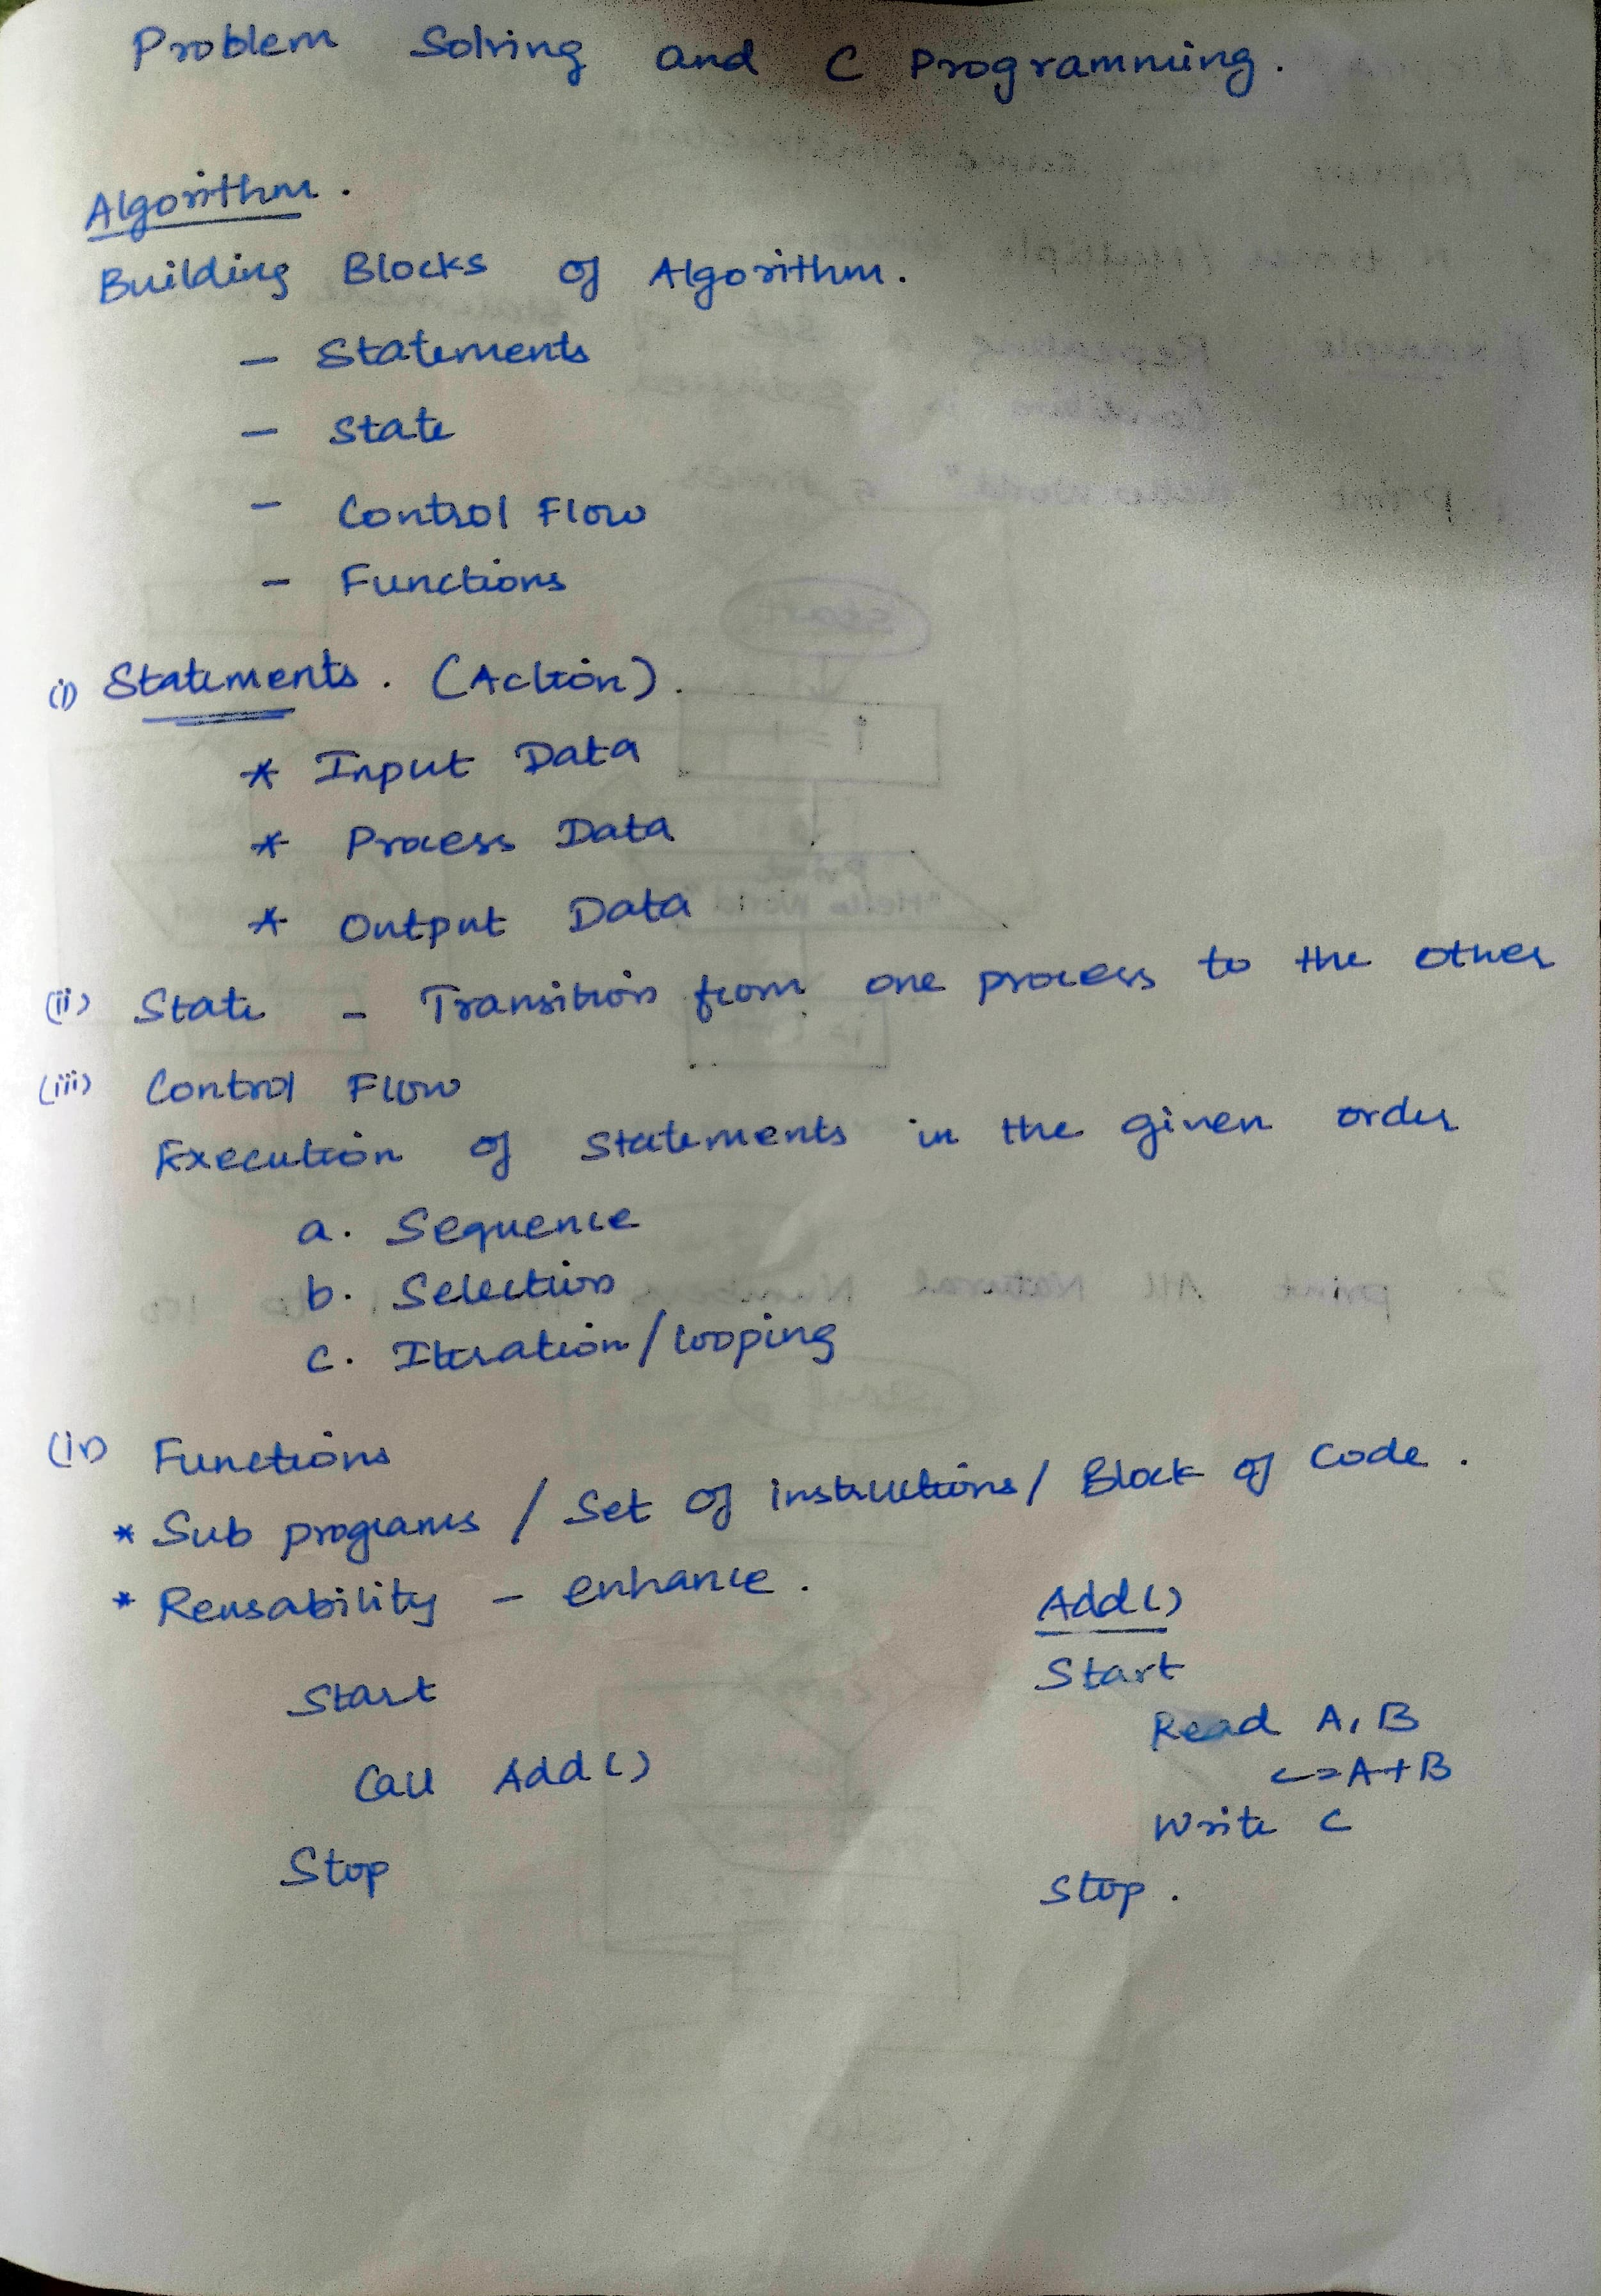 Problem Solving and C Programming.
Algorithm.
Building Blocks of Algorithm.
- Statements
- State
- Control Flow
- Functions
(i) Statements. (Action).
* Input Data
* Process Data
* Output Data
(ii) State - Transition from one process to the other
(iii) Control Flow
Execution of Statements in the given order
a. Sequence
b. Selection
c. Iteration/looping
(iv) Functions
* Sub programs / Set of instructions / Block of Code.
* Reusability - enhance.
Start
Call Add()
Stop
Add()
Start
Read A, B
C=A+B
Write C
Stop.